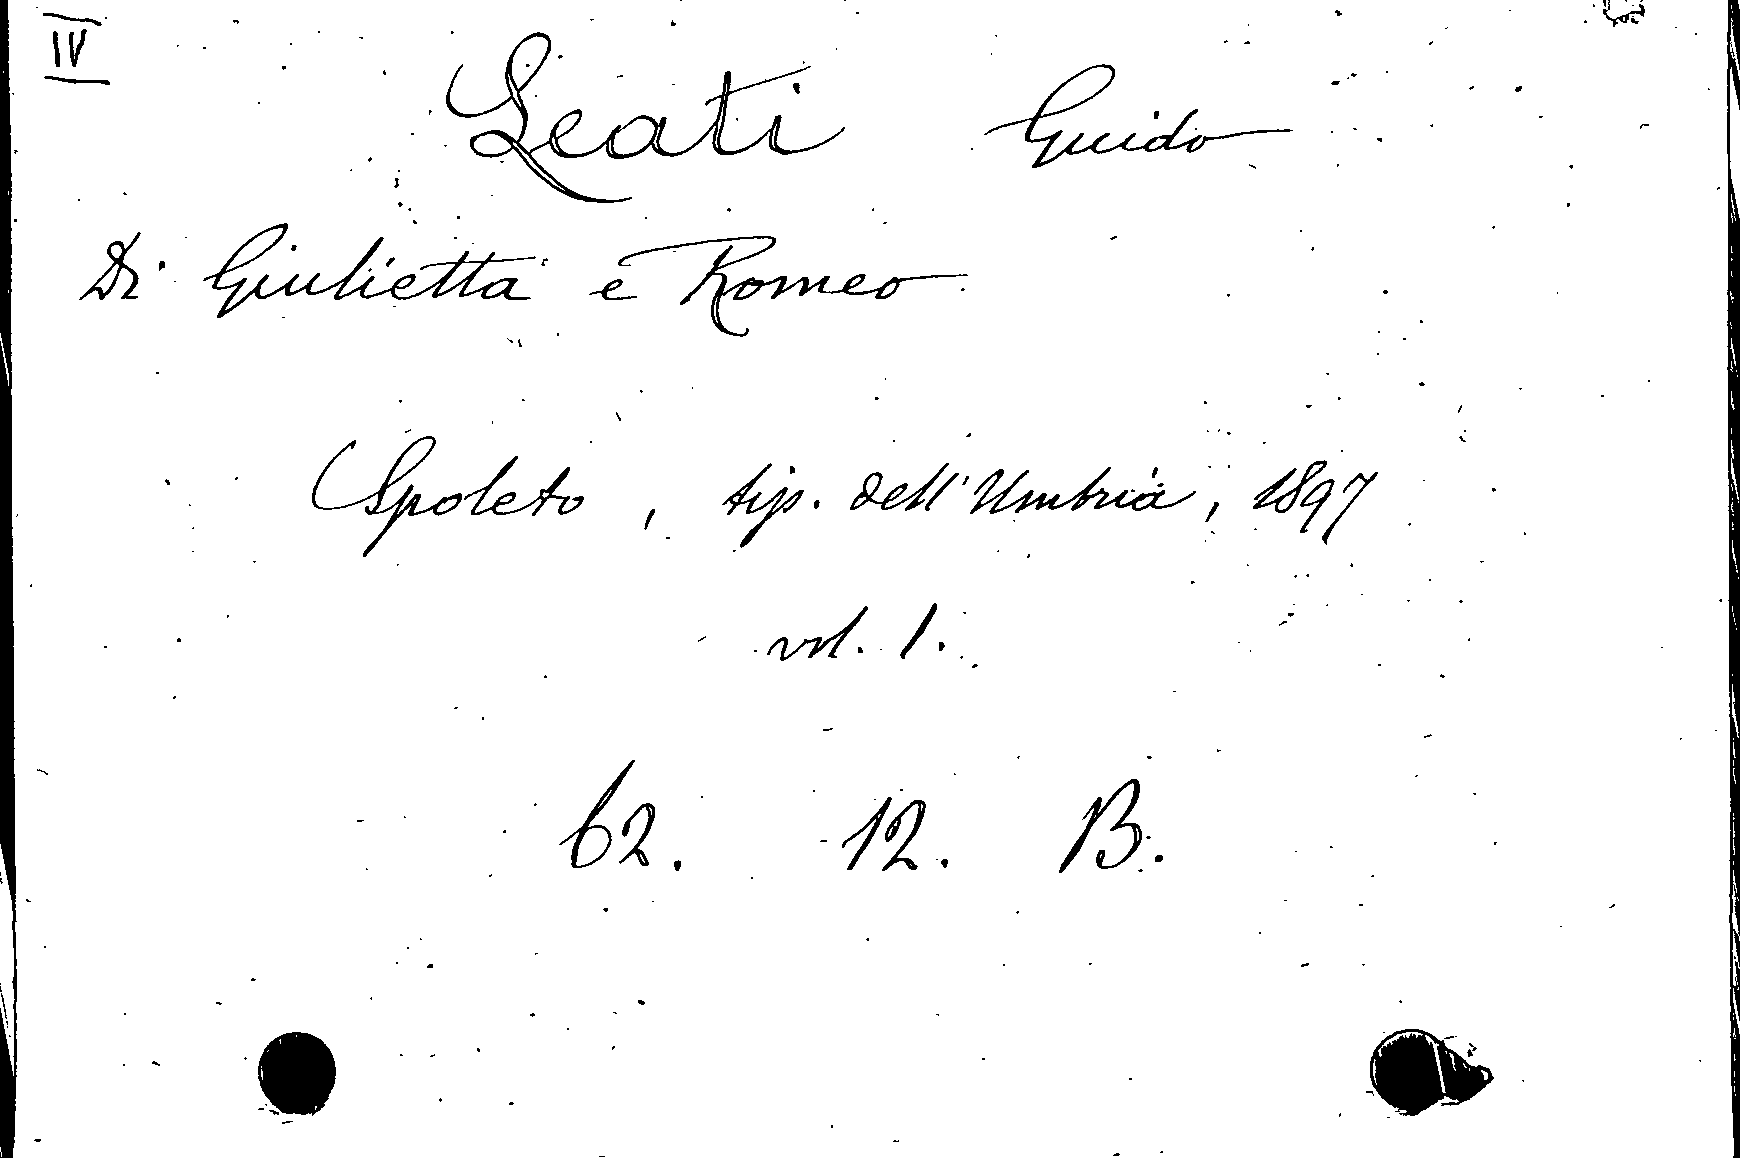 IV
Leati Guido
Di Giulietta e Romeo
Spoleto, tip. dell'Umbria, 1897
vol. 1.
62. 12. B.